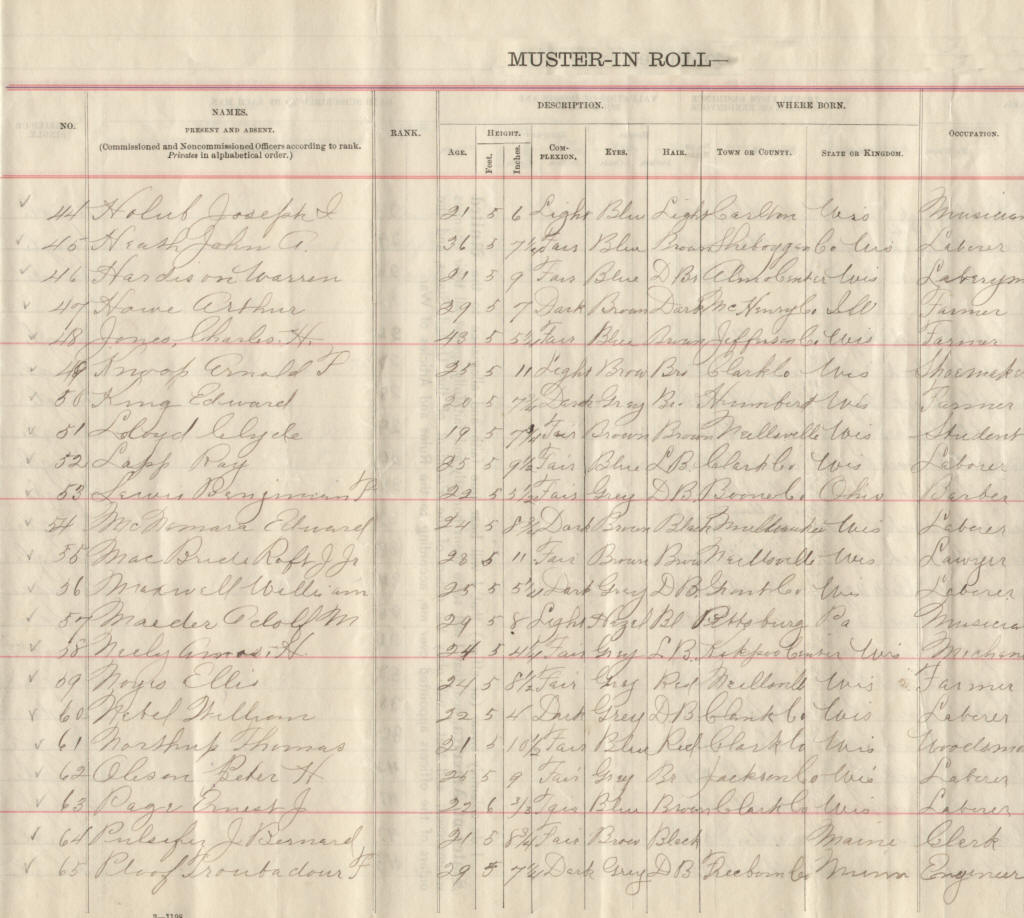 MUSTER-IN ROLL—
NO.
NAMES.
PRESENT AND ABSENT.
(Commissioned and Noncommissioned Officers according to rank.
Privates in alphabetical order.)
RANK.
DESCRIPTION.
AGE.
HEIGHT.
Feet.
Inches.
COM-
PLEXION.
EYES.
HAIR.
WHERE BORN.
TOWN OR COUNTY.
STATE OR KINGDOM.
OCCUPATION.
44 Holub Joseph I 21 5 6 Light Blu Light Carlton Wis Musician
45 Heath John A. 36 5 7½ Fair Blue Brown Sheboygan Co Wis Laberer
46 Hardison Warren 21 5 9 Fair Blue D Br Alma Center Wis
47 Howe Arthur 29 5 7 Dark Brown Dark McHenry Co Ill Farmer
48 Jones, Charles. H. 43 5 Fair Blue Brown Jefferson Co Wis Farmer
49 Knoop Arnold F 25 5 11 Light Brow Bro Clark Co Wis Shoemake
50 King Edward 20 5 Dark Gray Br. Humberd Wis Farmer
51 Lloyd Clyde 19 5 Fair Brown Brown Neillsville Wis Student
52 Lapp Ray 25 5 9½ Fair Blue L B. Clark Co Wis Laborer
53 Lewis Benjmain F 22 5 5½ Fair Grey D B. Boone Co Ohio Barber
54 McNomara Edward 24 5 Dark Brown Black Milwaukee Wis Laberer
55 Mac Bride Robt J Jr 28 5 11 Fair Brown Brow Neillsville Wis Lawyer
56 Maxwell William 25 5 Dark Gray D B. Grant Co Wis Laberer
57 Maeder Adolf M 29 5 8 Light Hazel Bl Pittsburg Pa Musicia
58 Neely Amos. H 24 5 Fair Grey L B. Center Wis Mechan
59 Noyes Ellis 24 5 8½ Fair Gray Red Neillsvill Wis Farmer
60 Nebel William 22 5 4 Dark Grey D B Clark Co Wis Laberer
61 Northup Thomas 21 5 10½ Fair Blue Red Clark Co Wis Woodsma
62 Oleson Peter H 25 5 9 Fair Grey Br Jackson Co Wis Laberer
63 Page Ernest J 22 6 Fair Blue Brown Clark Co Wis Laberer
64 Pulsifer J Bernard 21 5 8¾ Fair Brow Black Maine Clark
65 Ploof Troubadour F 29 5 Dark Grey D B Freeborn Co Minn Engineer
2—1198